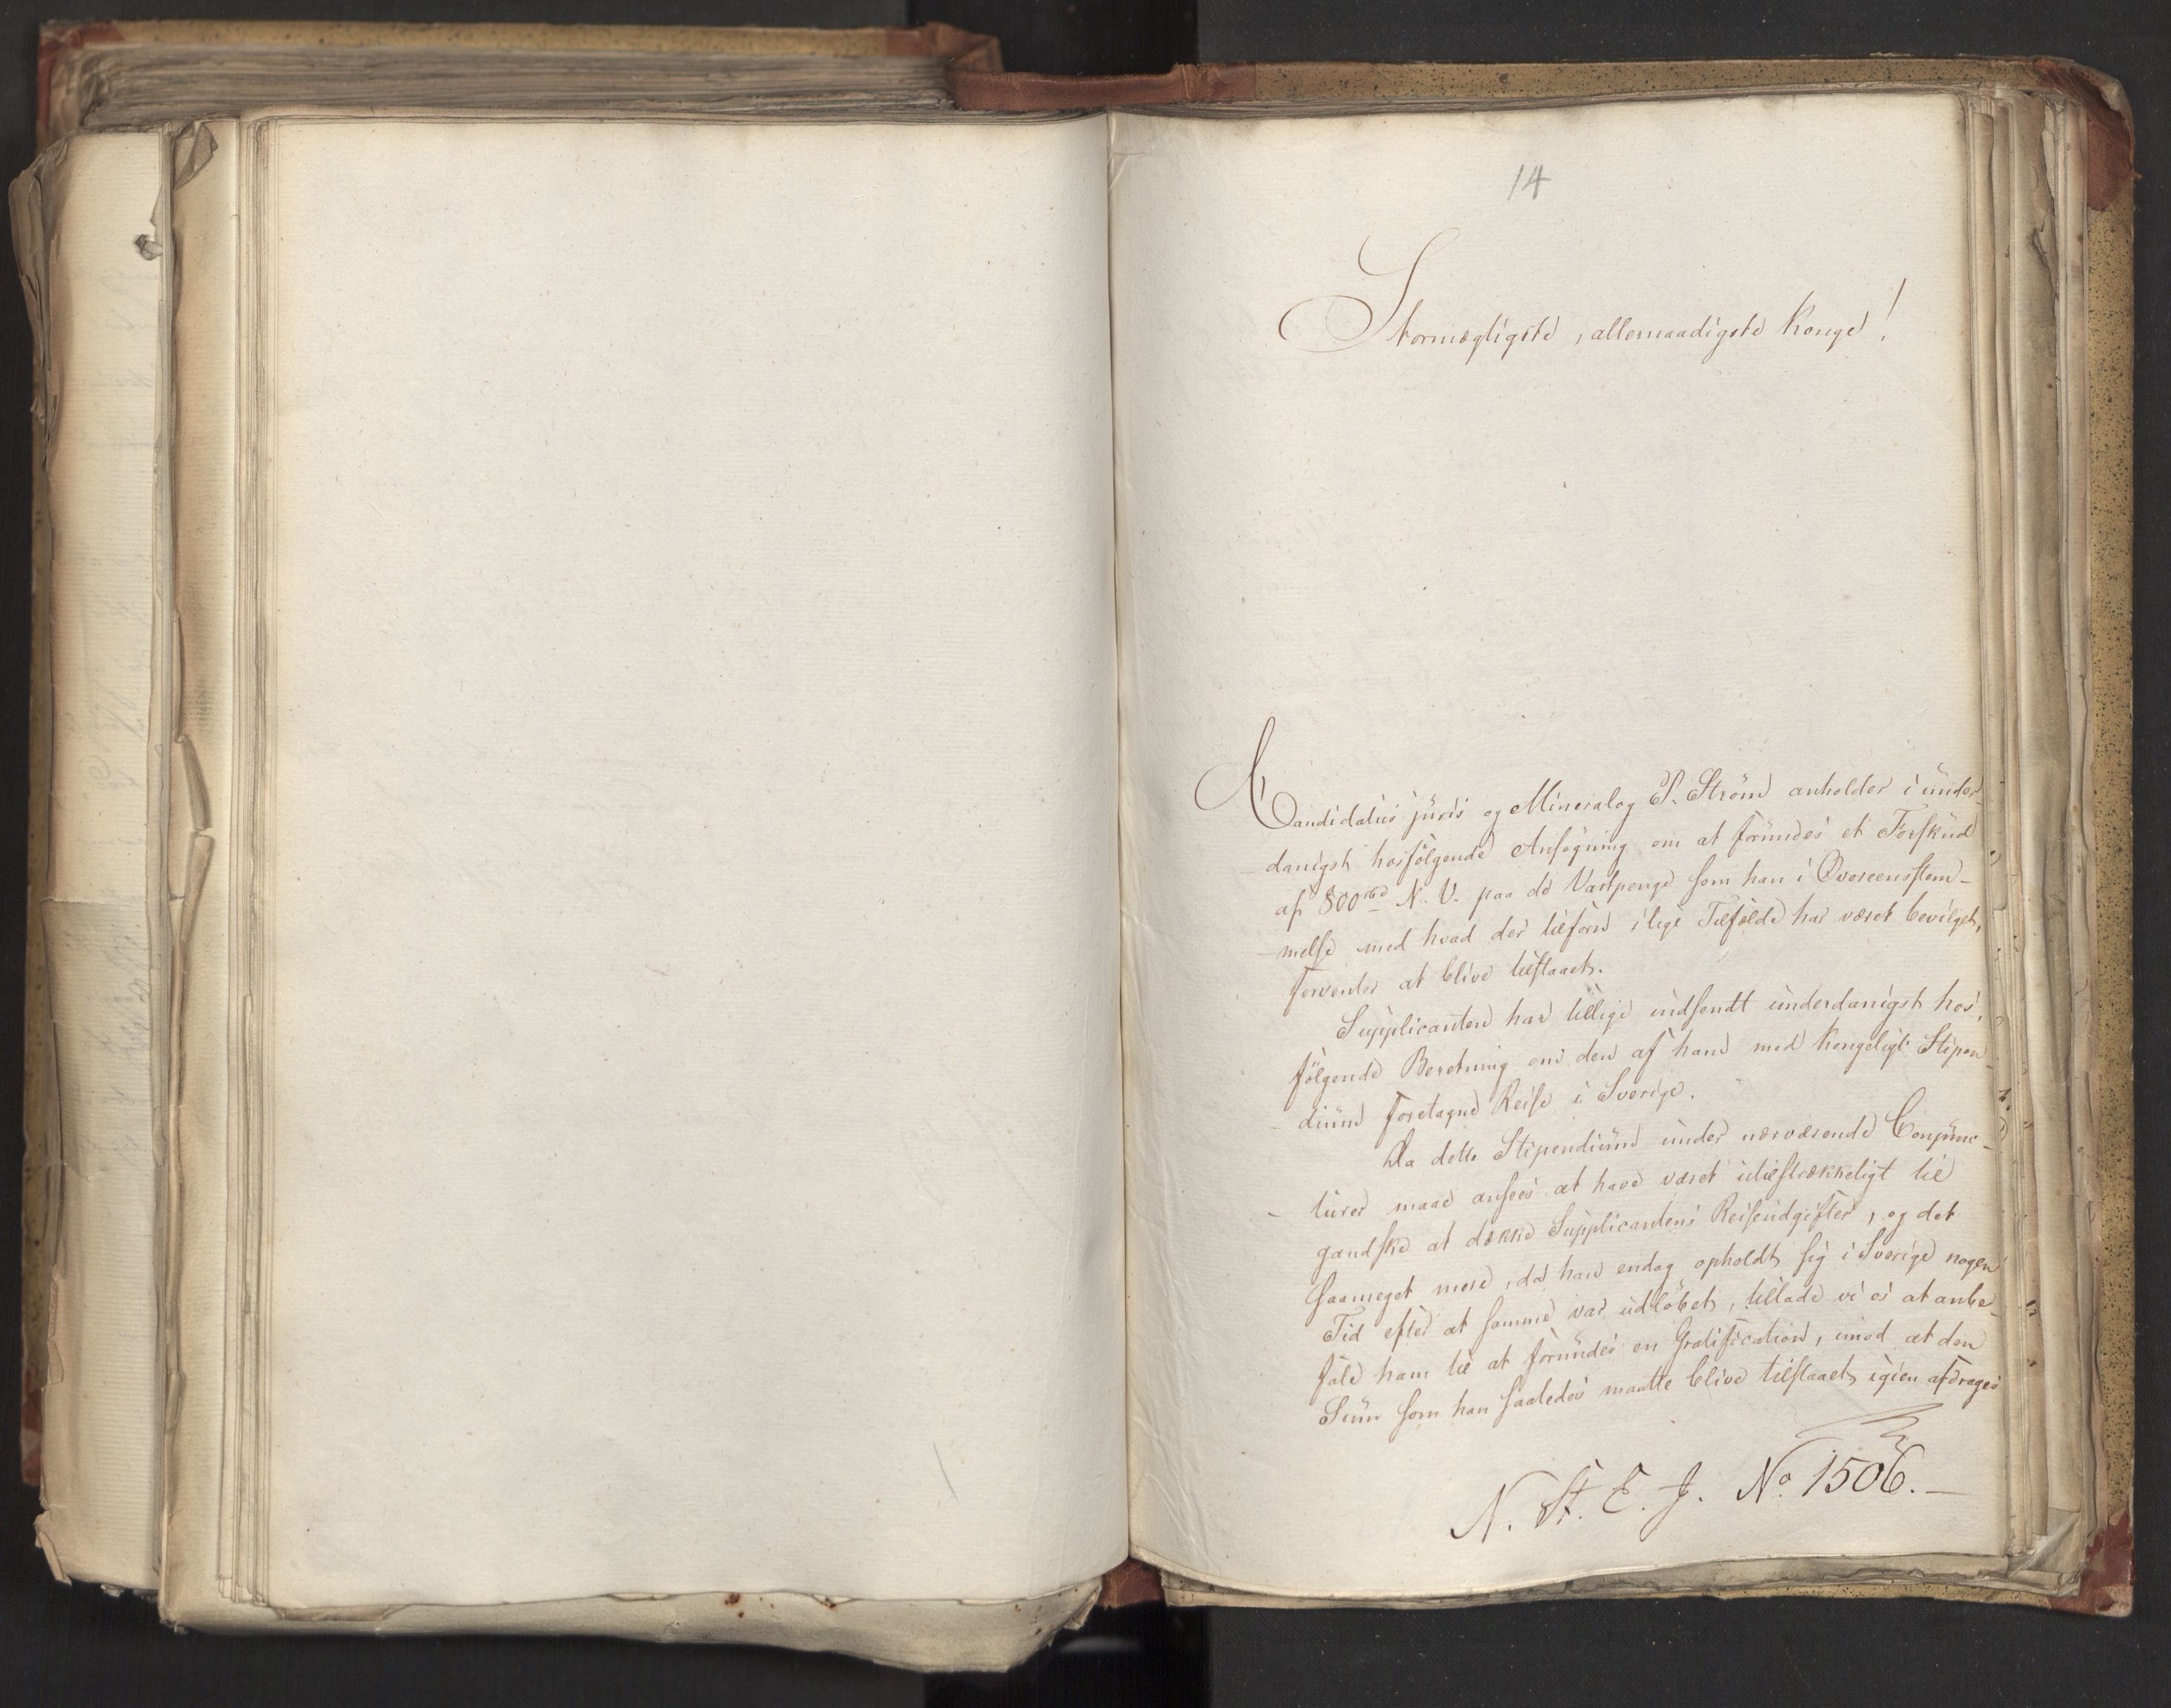 14
Stormægtigste, allernaadigste Konge!
Candidatus juris og Mineralog P. Strøm anholder i under-
danigst hosfølgende Ansøgning om at forundes et Forskud
af 800 rbd N. V. paa de Vartpenge som han i Overeensstem-
melse med hvad der tilforn i lige Tilfælde har været bevilget,
forventer at blive tilstaaet.
Supplicanten har tillige indsendt underdanigst hos-
følgende Beretning om den af ham med Kongeligt Stipen-
dium foretagne Reise i Sverige.
Da dette Stipendium under nærværende Conjunc-
turer maae ansees at have været utilstrækkeligt til
gandske at dække Supplicantens Reiseudgifter, og det
saameget mere, da han endog opholdt sig i Sverige nogen
Tid efter at samme var udløbet, tillade vi os at anbe-
fale ham til at forundes en Gratification, imod at den
Sum som han saaledes maatte blive tilstaaet, igien afdrages
N. St. E. J. No 1506.